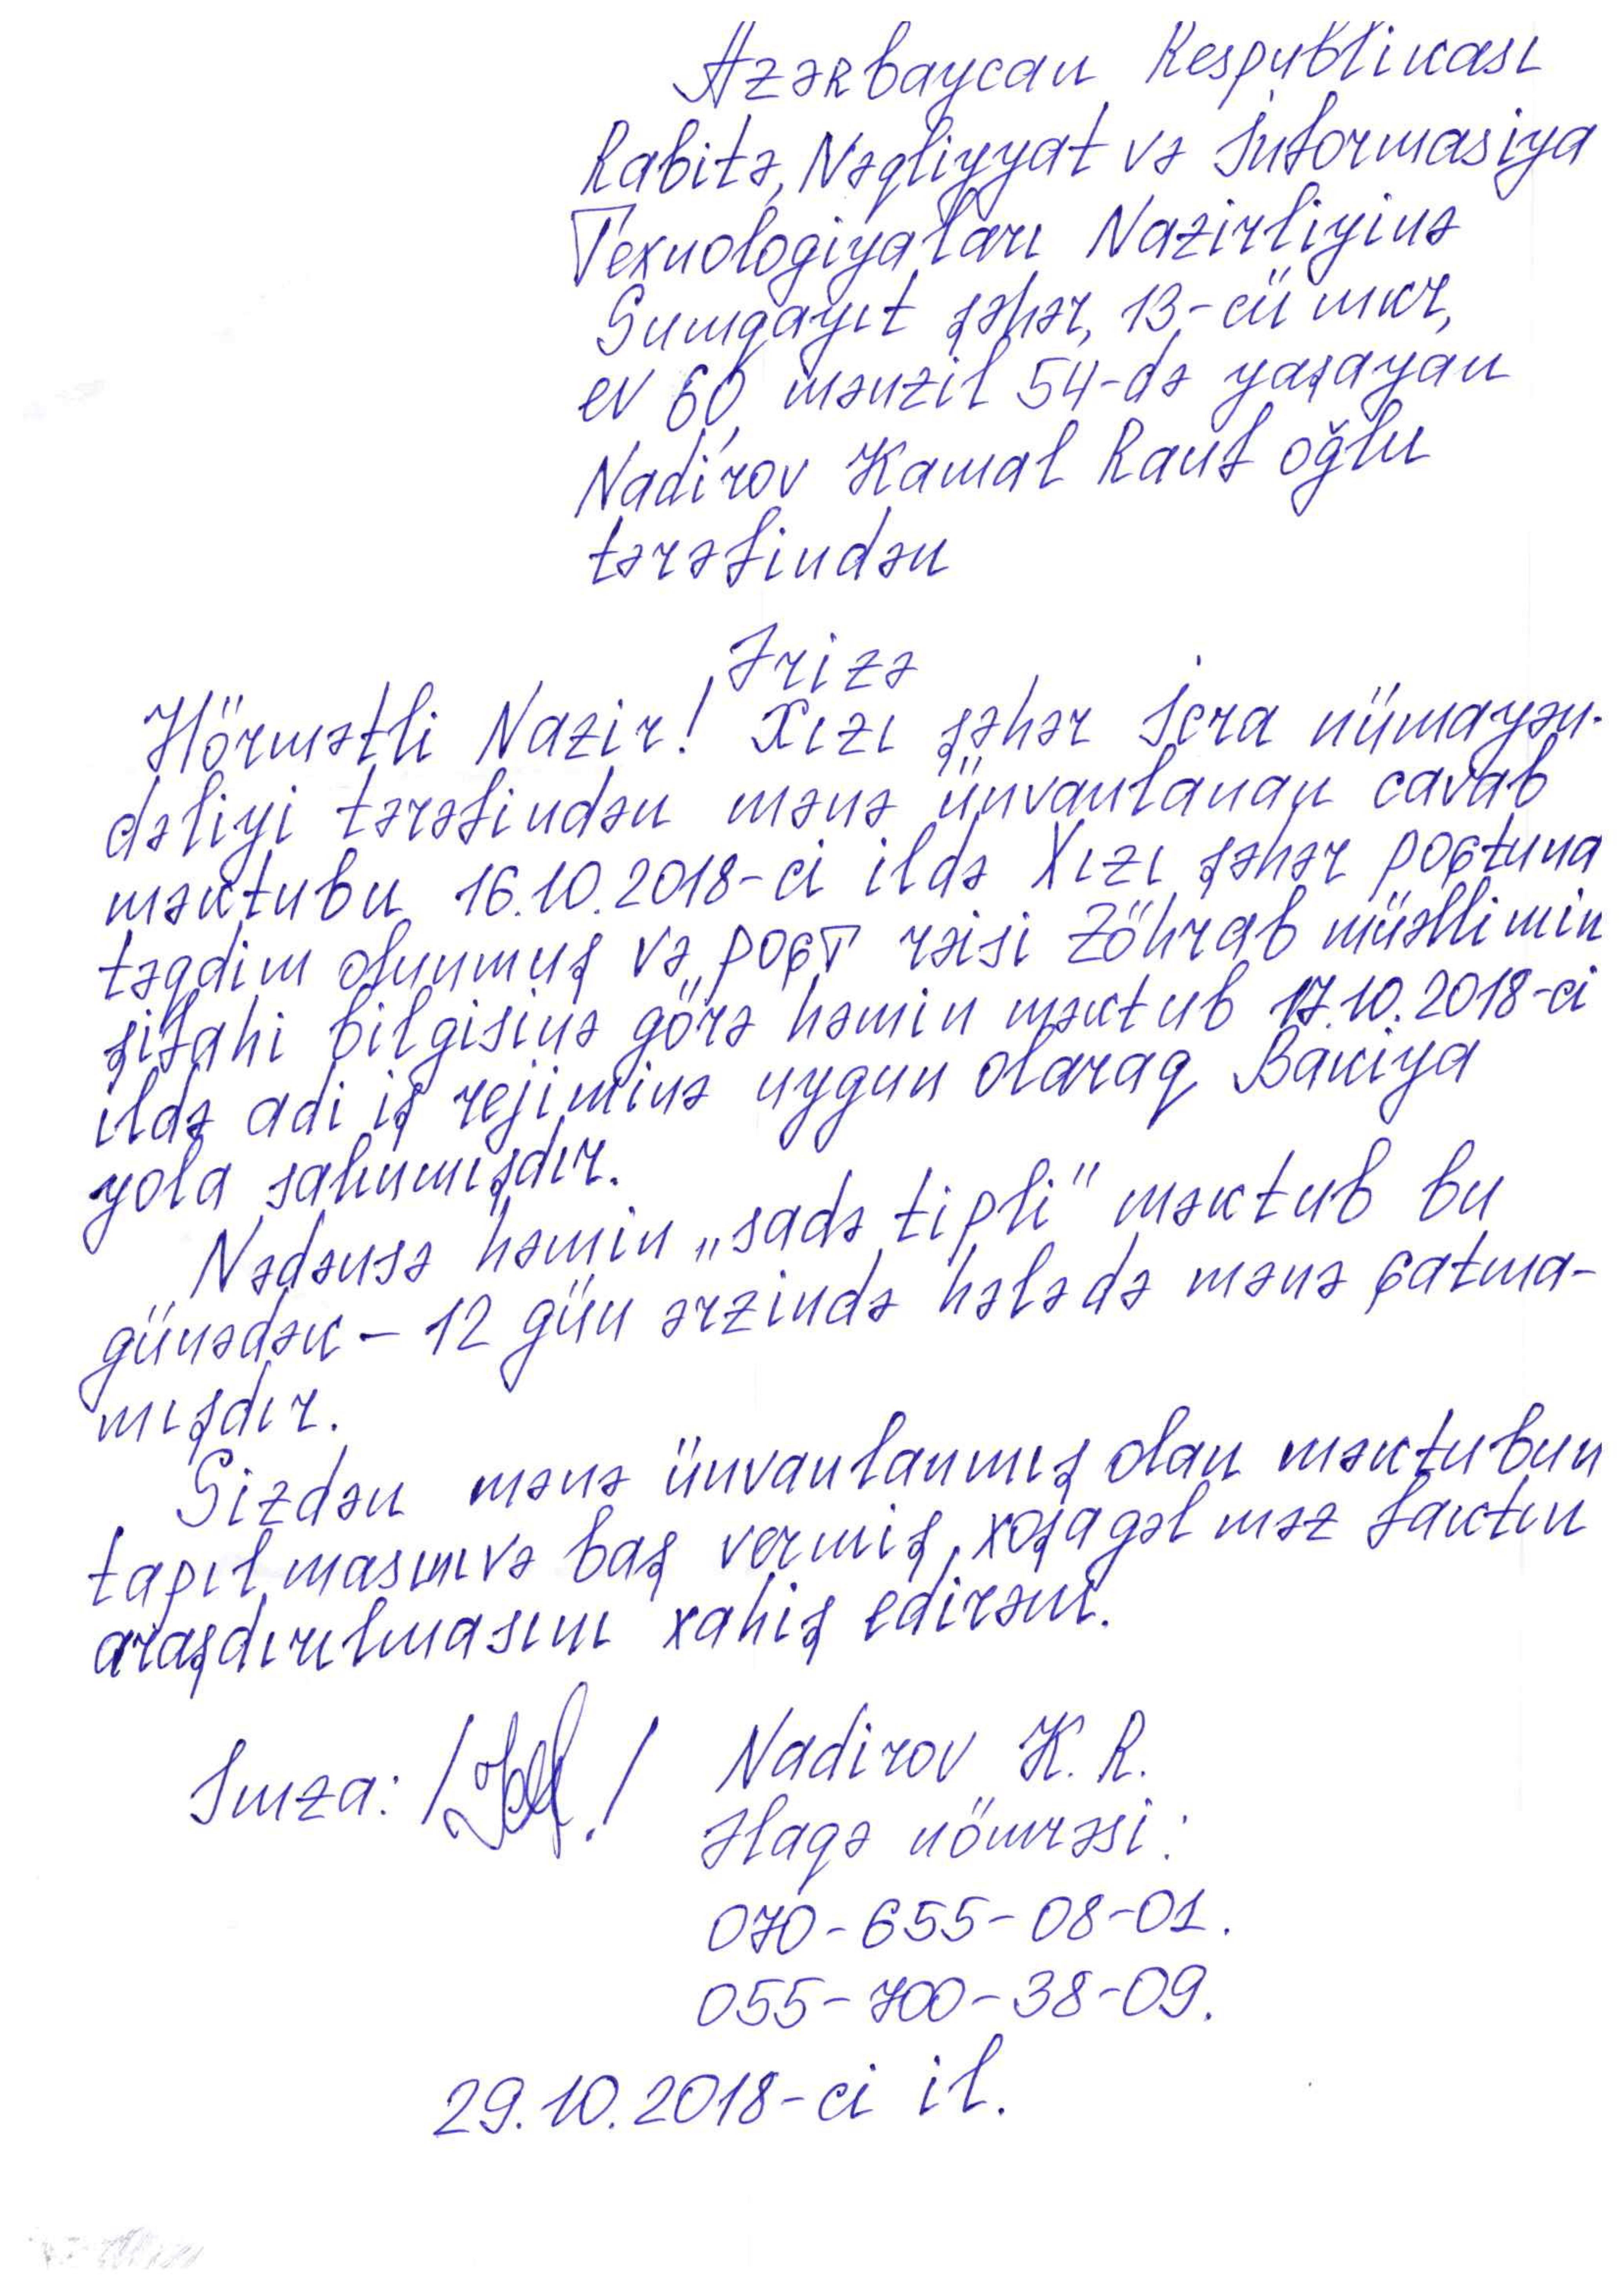 Azərbaycan Respublikası
Rabitə, Nəqliyyat və İnformasiya
Texnologiyaları Nazirliyinə
Sumqayıt şəhər, 13-cü mkr,
ev 60, mənzil 54-də yaşayan
Nadirov Kamal Rauf oğlu
tərəfindən
Ərizə
Hörmətli Nazir! Xızı şəhər İcra nümayən-
dəliyi tərəfindən mənə ünvanlanan cavab
məktubu 16.10.2018-ci ildə Xızı şəhər poçtuna
təqdim olunmuş və poçt rəisi Zöhrab müəllimin
şifahi bilgisinə görə həmin məktub 17.10.2018-ci
ildə adi iş rejiminə uygun olaraq Bakiya
yola salınmışdır.
Nədənsə həmin „sadə tipli" məktub bu
günədək - 12 gün ərzində hələdə mənə çatma-
mışdır.
Sizdən mənə ünvanlanmış olan məktubun
tapılmasını və baş vermiş xoşagəlməz faktın
araşdırılmasını xahiş edirəm.
İmza: / / Nadirov K. R.
Əlaqə nömrəsi:
070-655-08-01.
055-700-38-09.
29.10.2018-ci il.